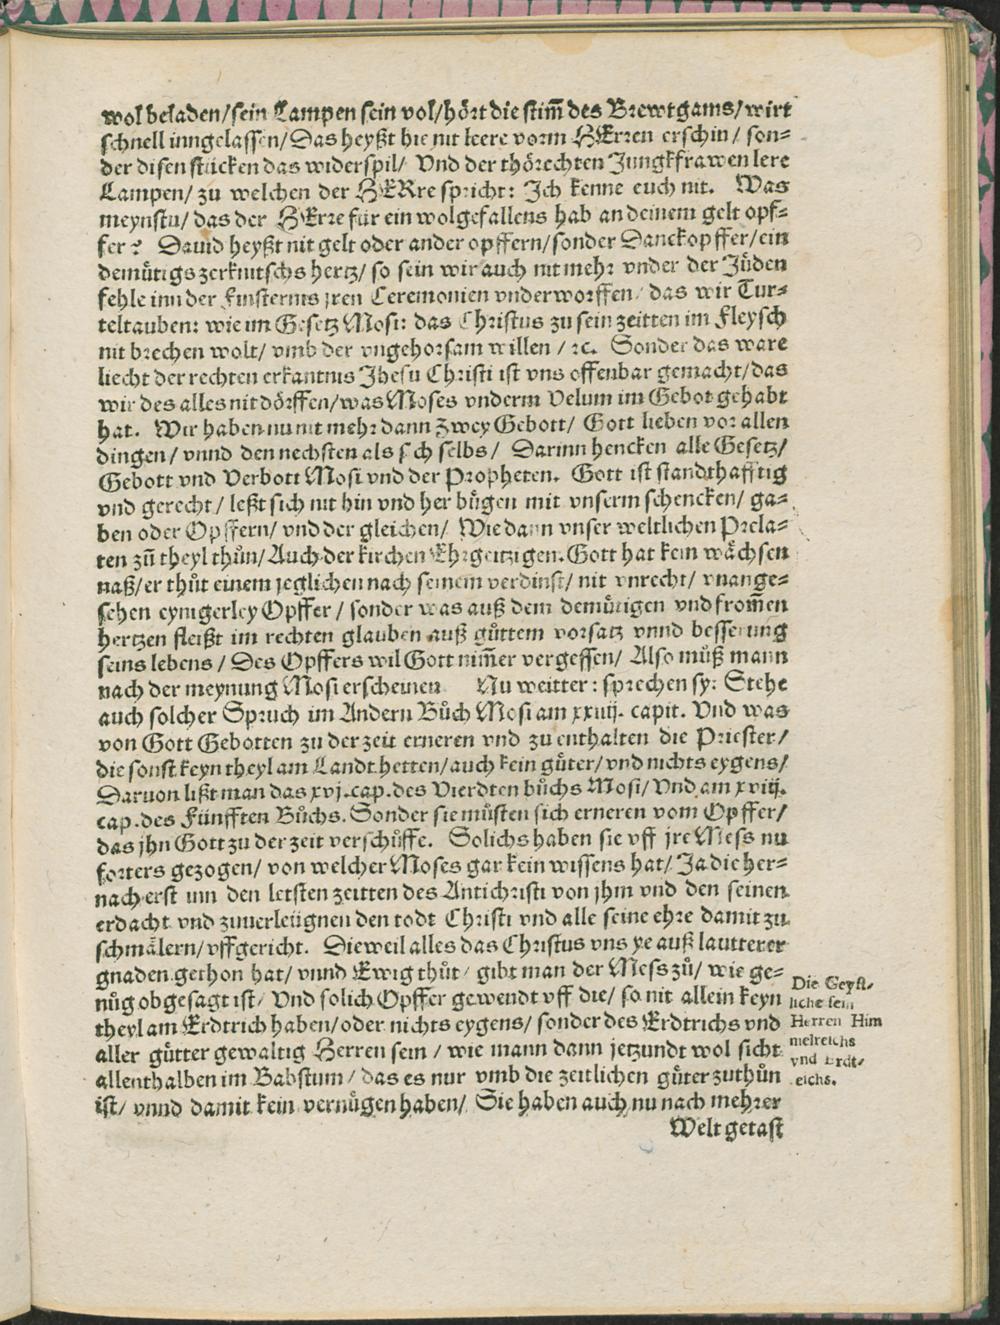 wol beladen/sein Lampen sein vol/hört die stim̃ des Brewtgams/wirt
schnell inngelassen/Das heyßt hie nit leere vorm HErren erschin/ son=
der disen stücken das widerspil/ Vnd der thörechten Jungkfrawen lere
Lampen/ zu welchen der HERre spricht: Ich kenne euch nit. Was
meynstu/das der HErre für ein wolgefallens hab an deinem gelt opf=
fer? Dauid heyßt nit gelt oder ander opffern/sonder Danckopffer/ein
demütigs zerknitschs hertz/ so sein wir auch nit mehr vnder der Jüden
fehle inn der Finsternis jren Ceremonien vnderworffen/ das wir Tur=
teltauben: wie im Gesetz Mosi: das Christus zu sein zeitten im Fleysch
nit brechen wolt/ vmb der vngehorsam willen / ⁊c. Sonder das ware
liecht der rechten erkantnis Jhesu Christi ist vns offenbar gemacht/das
wir des alles nit dörffen/was Moses vnderm Velum im Gebot gehabt
hat. Wir haben nu nit mehr dann zwey Gebott/ Gott lieben vor allen
dingen/ vnnd den nechsten als sich selbs/ Darinn hencken alle Gesetz/
Gebott vnd Verbott Mosi vnd der Propheten. Gott ist standthafftig
vnd gerecht/ leßt sich nit hin vnd her bügen mit vnserm schencken/ ga=
ben oder Opffern/ vnd der gleichen/ Wie dann vnser weltlichen Prela=
ten zũ theyl thůn/Auch der kirchen Ehrgeitzigen. Gott hat kein wächsen
naß/er thůt einem jeglichen nach seinem verdinst/ nit vnrecht/ vnange=
sehen eynigerley Opffer / sonder was auß dem demütigen vnd from̃en
hertzen fleißt im rechten glauben auß gůttem vorsatz vnnd besserung
seins lebens / Des Opffers wil Gott nim̃er vergessen/ Also můß mann
nach der meynung Mosi erscheinen Nu weitter: sprechen sy: Stehe
auch solcher Spruch im Andern Bůch Mosi am xxiiij. capit. Vnd was
von Gott Gebotten zu der zeit erneren vnd zu enthalten die Priester/
die sonst keyn theyl am Landt hetten/auch kein gůter/vnd nichts eygens/
Daruon lißt man das xvj.cap.des Vierdten bůchs Mosi/ Vnd am xviij.
cap.des Fünfften Bůchs. Sonder sie můsten sich erneren vom Opffer/
das jhn Gott zu der zeit verschůffe. Solichs haben sie vff jre Mess nu
forters gezogen/ von welcher Moses gar kein wissens hat/ Ja die her=
nach erst inn den letsten zeitten des Antichristi von jhm vnd den seinen
erdacht vnd zuuerleügnen den todt Christi vnd alle seine ehre damit zu
schmälern/vffgericht. Dieweil alles das Christus vns ye auß lautterer
gnaden gethon hat/ vnnd Ewig thůt/ gibt man der Mess zů/ wie ge=
nůg obgesagt ist/ Vnd solich Opffer gewendt vff die/ so nit allein keyn
theyl am Erdtrich haben/oder nichts eygens/ sonder des Erdtrichs vnd
aller gütter gewaltig Herren sein / wie mann dann jetzundt wol sicht
allenthalben im Babstum/ das es nur vmb die zeitlichen gůter zuthůn
ist/ vnnd damit kein vernůgen haben/ Sie haben auch nu nach mehrer
Welt getast
Die Geyst-
liche sein
Herren Him
melreichs
vnd Erdt-
reichs.